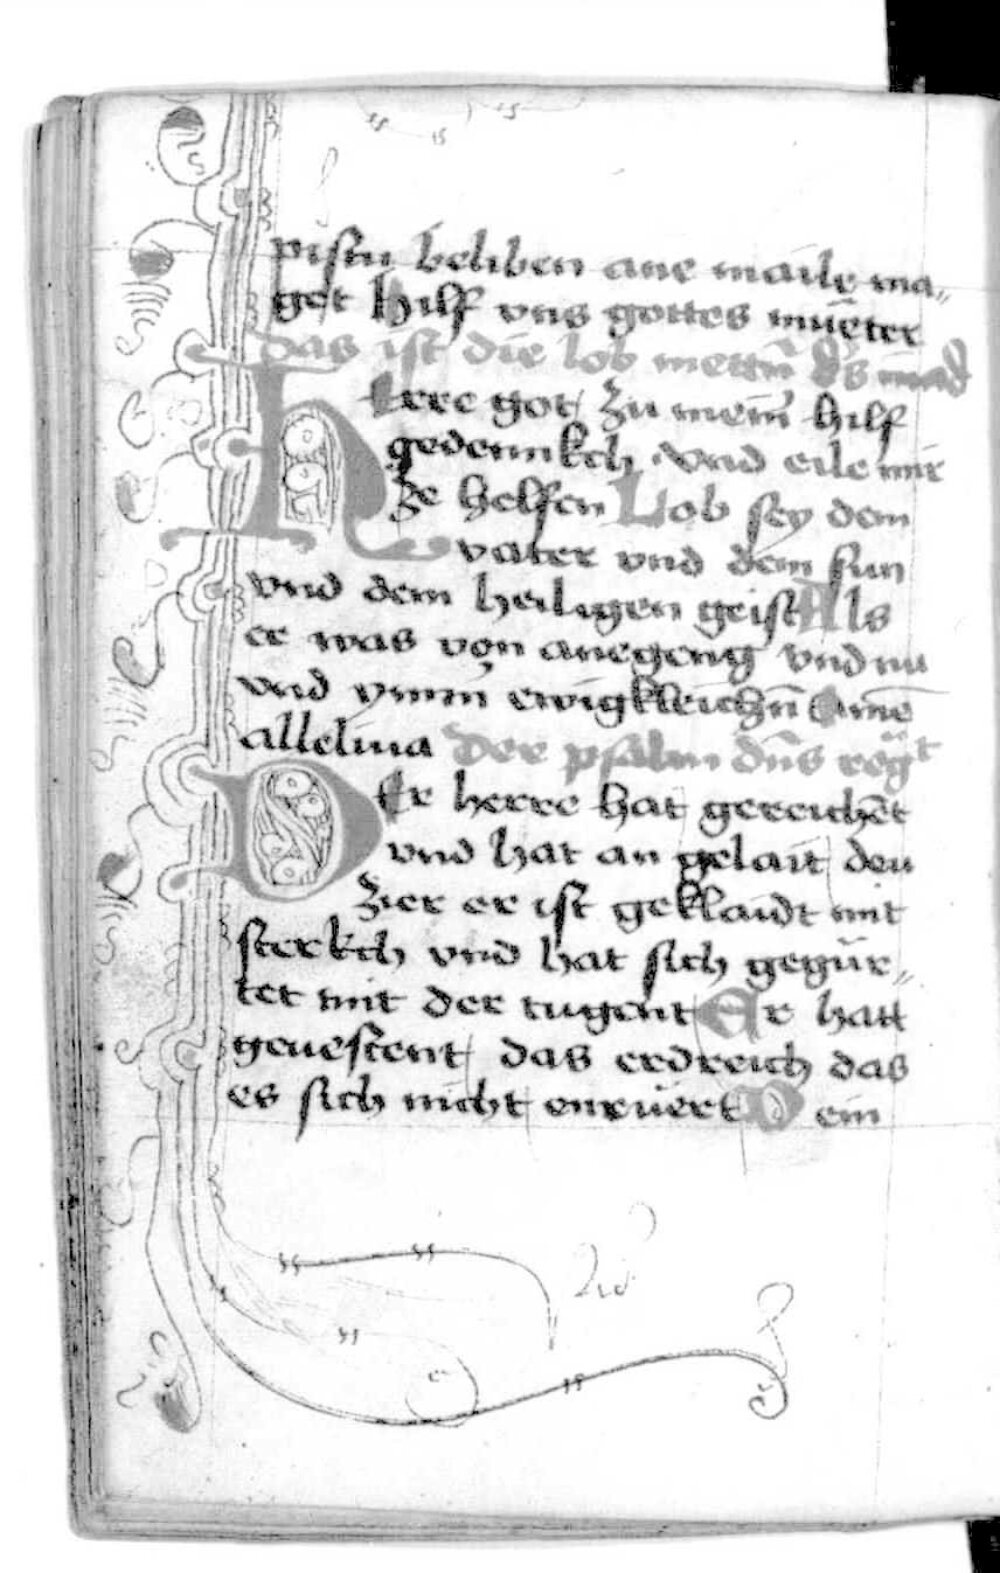 pistu beliben ane maile ma„
get hilf vns gottes mũeter
das ist die lob mettñ
Herre got zu meim̃ hilf
gedennkch vnd eile mir
ze helfen Lob sey dem
vater vnd dem sun
vnd dem heiligen geist Als
er was von anegeng vnd nu
vnd ymm̃ ewigkleichñ Amẽ
alleluia Der psalm dñs regͭ
Der herre hat gereichẽt
vnd hat an gelait den
zier er ist geklaidt mit
sterkch vnd hat sich gegür„
tet mit der tugent Er hatt
geuestent das erdreich das
es sich nicht enruert Dein